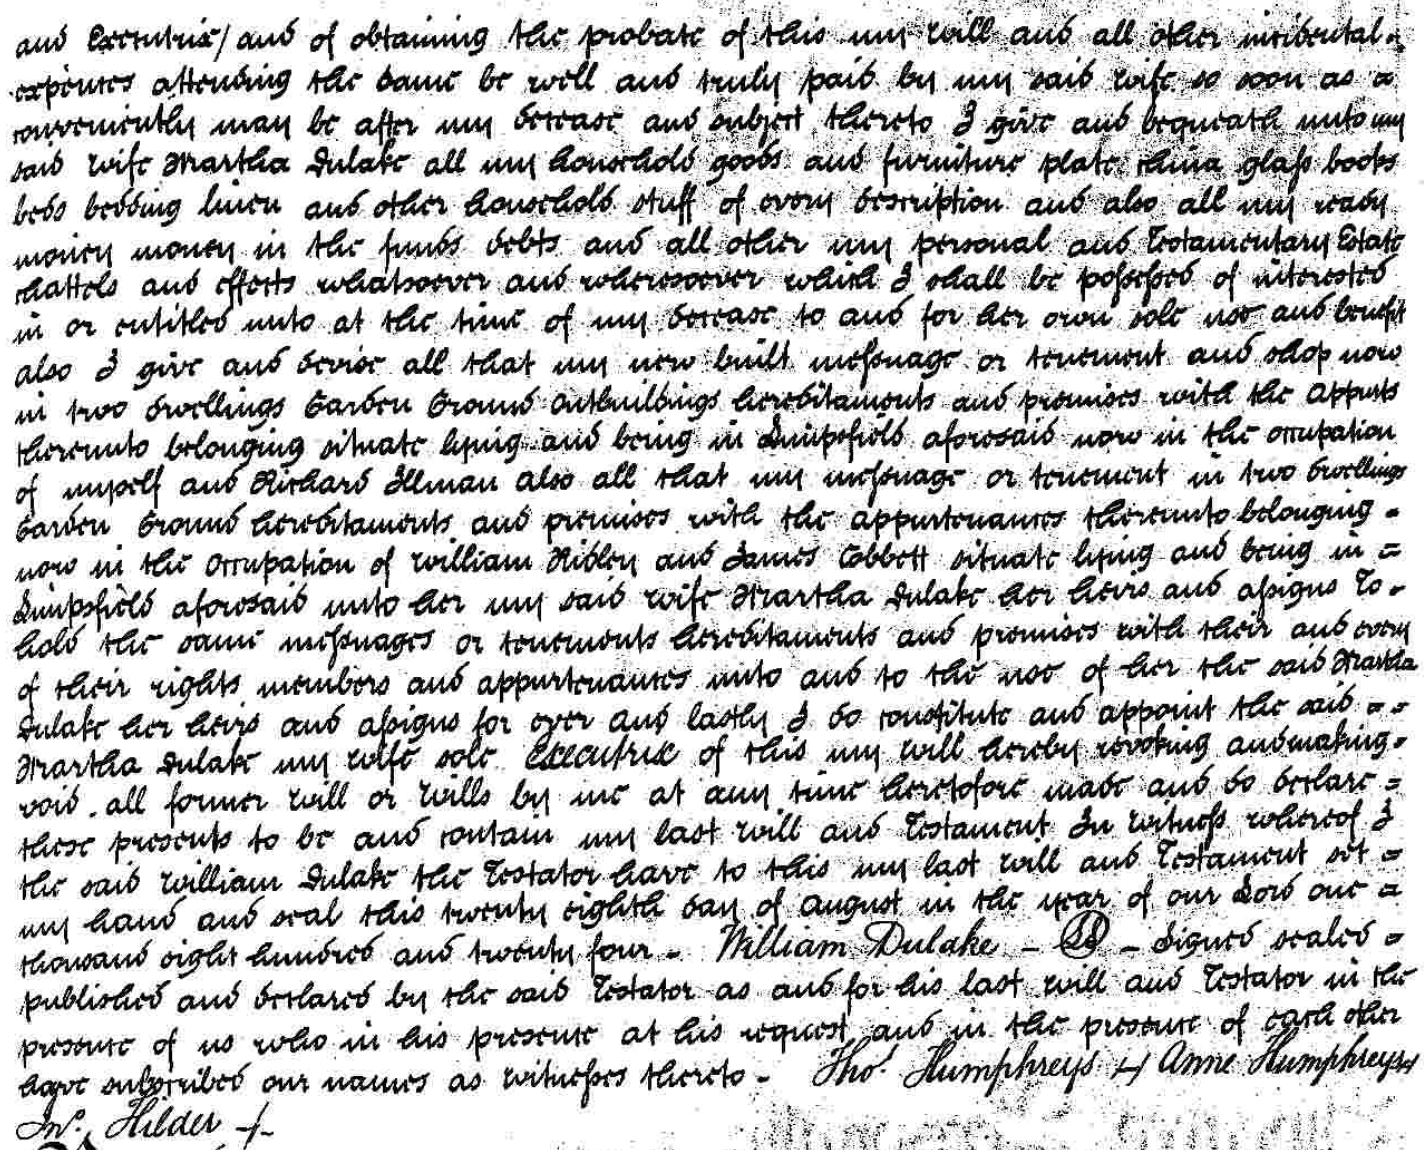 and Executrix/ and of obtaining the probate of this my will and all other incidental -
expences attending the same be well and truly paid by my said wife so soon as =
conveniently may be after my decease and subject thereto I give and bequeath unto my
said wife Martha Dulake all my household goods and furniture plate china glass books
beds bedding linen and other household stuff of every description and also all my ready
money money in the funds debts and all other my personal and Testamentary Estate
chattels and effects whatsoever and wheresoever which I shall be possessed of interested
in or entitled unto at the time of my decease to and for her own sole use and benefit
also I give and devise all that my new built messuage or tenement and shop now
in two dwellings Garden Ground Outbuildings hereditaments and premises with the Appurts
thereunto belonging situate lying and being in Limpsfield aforesaid now in the occupation
of myself and Richard Illman also all that my messuage or tenement in two dwellings
Garden Ground hereditaments and premises with the appurtenances thereunto belonging -
now in the Occupation of William Ridley and James Cobbett situate lying and being in =
Limpsfield aforesaid unto her my said wife Martha Dulake her heirs and assigns To -
hold the same messuages or tenements hereditaments and premises with their and every
of their rights members and appurtenances unto and to the use of her the said Martha
Dulake her heirs and assigns for ever and lastly I do constitute and appoint the said = =
Martha Dulake my wife sole Executrix of this my will hereby revoking and making -
void . all former will or wills by me at any time heretofore made and do declare =
these presents to be and contain my last will and Testament In witness whereof I
the said William Dulake the Testator have to this my last will and Testament set =
my hand and seal this twenty eighth day of August in the year of our Lord one =
thousand eight hundred and twenty four - William Dulake - LS - Signed sealed =
published and declared by the said Testator as and for his last will and Testator in the
presence of us who in his presence at his request and in the presence of each other
have subscribed our names as witnesses thereto - Thos. Humphreys + Anne Humphreys +
Jno. Hilder +